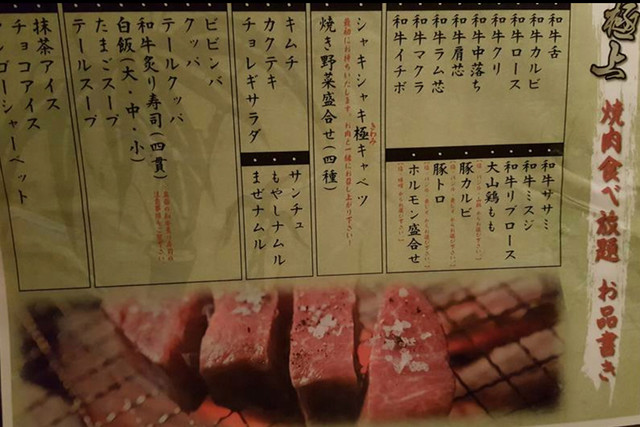 極上
焼肉食べ放題 お品書き
和牛舌
和牛カルビ
和牛ロース
和牛クリ
和牛中落ち
和牛肩芯
和牛ラム芯
和牛マクラ
和牛イチボ
和牛ササミ
和牛ミスジ
和牛リブロース
大山鶏もも
豚カルビ
豚トロ
ホルモン盛合せ
シャキシャキ極キャベツ
きわみ
最初にお持ちいたします。お肉と一緒にお召し上がり下さい！
焼き野菜盛合せ（四種）
キムチ
カクテキ
チョレギサラダ
サンチュ
もやしナムル
まぜナムル
ビビンバ
クッパ
テールクッパ
和牛炙り寿司（四貫）
白飯（大・中・小）
たまごスープ
テールスープ
抹茶アイス
チョコアイス
マンゴーシャーベット